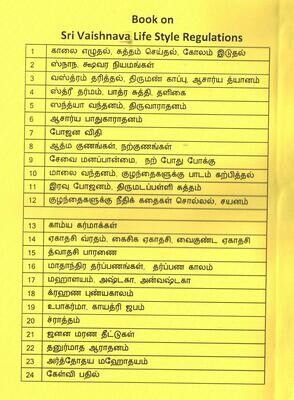 Book on
Sri Vaishnava Life Style Regulations
1 காலை எழுதல், சுத்தம் செய்தல், கோலம் இடுதல்
2 ஸ்நாந, க்ஷவர நியமங்கள்
3 வஸ்த்ரம் தரித்தல், திருமண் காப்பு, ஆசார்ய த்யானம்
4 ஸ்த்ரீ தர்மம், பாத்ர சுத்தி, தளிகை
5 ஸந்த்யா வந்தனம், திருவாராதனம்
6 ஆசார்ய பாதுகாராதனம்
7 போஜன விதி
8 ஆத்ம குணங்கள், நற்குணங்கள்
9 சேவை மனப்பான்மை, நற் போது போக்கு
10 மாலை வந்தனம், குழந்தைகளுக்கு பாடம் கற்பித்தல்
11 இரவு போஜனம், திருமடப்பள்ளி சுத்தம்
12 குழந்தைகளுக்கு நீதிக் கதைகள் சொல்லல், சயனம்
13 காம்ய கர்மாக்கள்
14 ஏகாதசி வ்ரதம், கைசிக ஏகாதசி, வைகுண்ட ஏகாதசி
15 த்வாதசி பாரணை
16 மாதாந்திர தர்ப்பணங்கள், தர்ப்பண காலம்
17 மஹாளயம், அஷ்டகா, அன்வஷ்டகா
18 க்ரஹண புண்யகாலம்
19 உபாகர்மா, காயத்ரி ஜபம்
20 ச்ராத்தம்
21 ஜனன மரண தீட்டுகள்
22 தனுர்மாத ஆராதனம்
23 அர்த்தோதய மஹோதயம்
24 கேள்வி பதில்